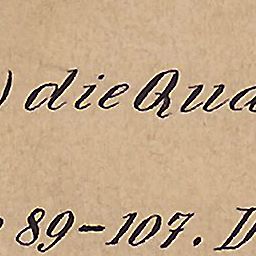 ) die Qua
89-107. D